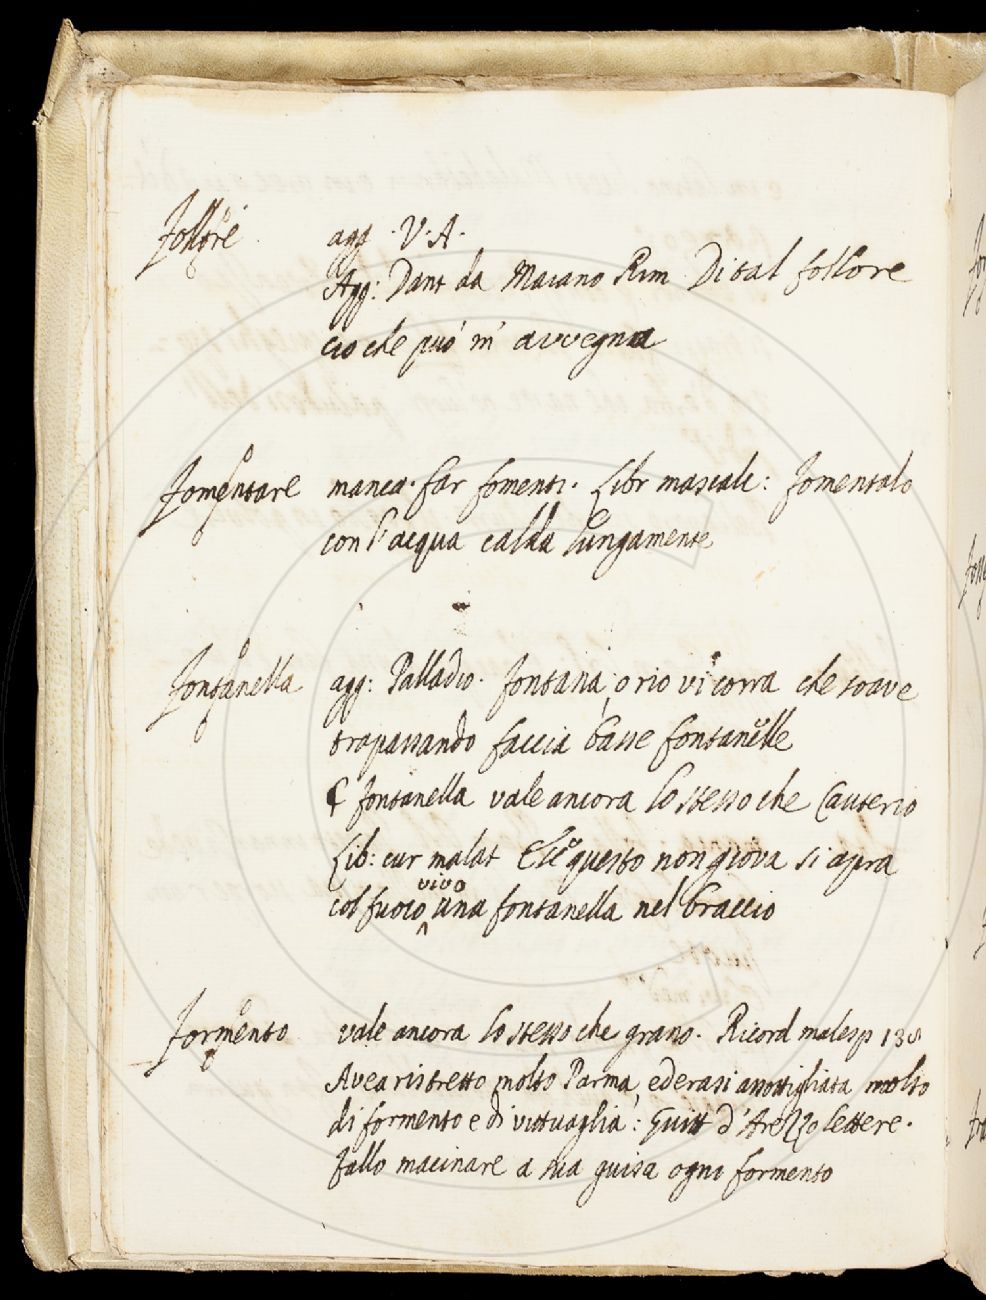 Follore agg. V. A.
Agg: Dant da Maiano Rim Di tal follore
cio che può m' avvegna
Fomentare manca. far fomenti. Libr mascalc: Fomentalo
con l'acqua calda lungamente
Fontanella agg: Palladio. Fontana, o rio vi corra che soave
trapassando faccia basse fontanelle
Fontanella vale ancora lo stesso che Cauterio
Lib: cur malat E se questo non giova si apra
col fuoco vivo una fontanella nel braccio
Formento vale ancora lo stesso che grano. Ricord malesp 138
Avea ristretto molto Parma, ed erasi assottigliata molto
di formento e di vittuaglia: Guitt d'Arezzo lettere.
Fallo macinare a sua guisa ogni formento